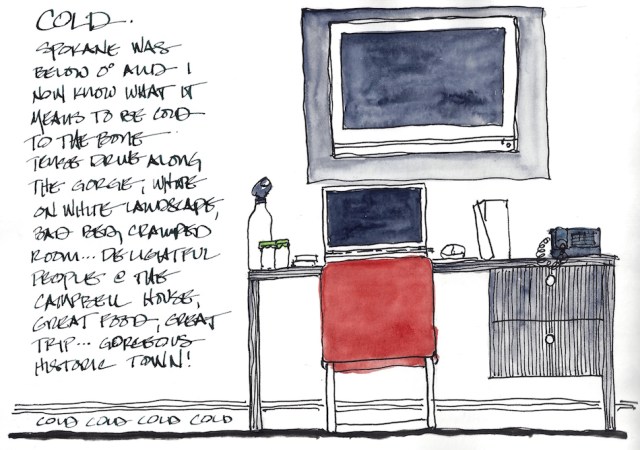 COLD.
SPOKANE WAS
BELOW 0° AND I
NOW KNOW WHAT IT
MEANS TO BE COLD
TO THE BONE
TENSE DRIVE ALONG
THE GORGE, WHITE
ON WHITE LANDSCAPE,
BAD BED, CRAMPED
ROOM... DELIGHTFUL
PEOPLE @ THE
CAMPBELL HOUSE,
GREAT FOOD, GREAT
TRIP... GORGEOUS
HISTORIC TOWN!
COLD COLD COLD COLD